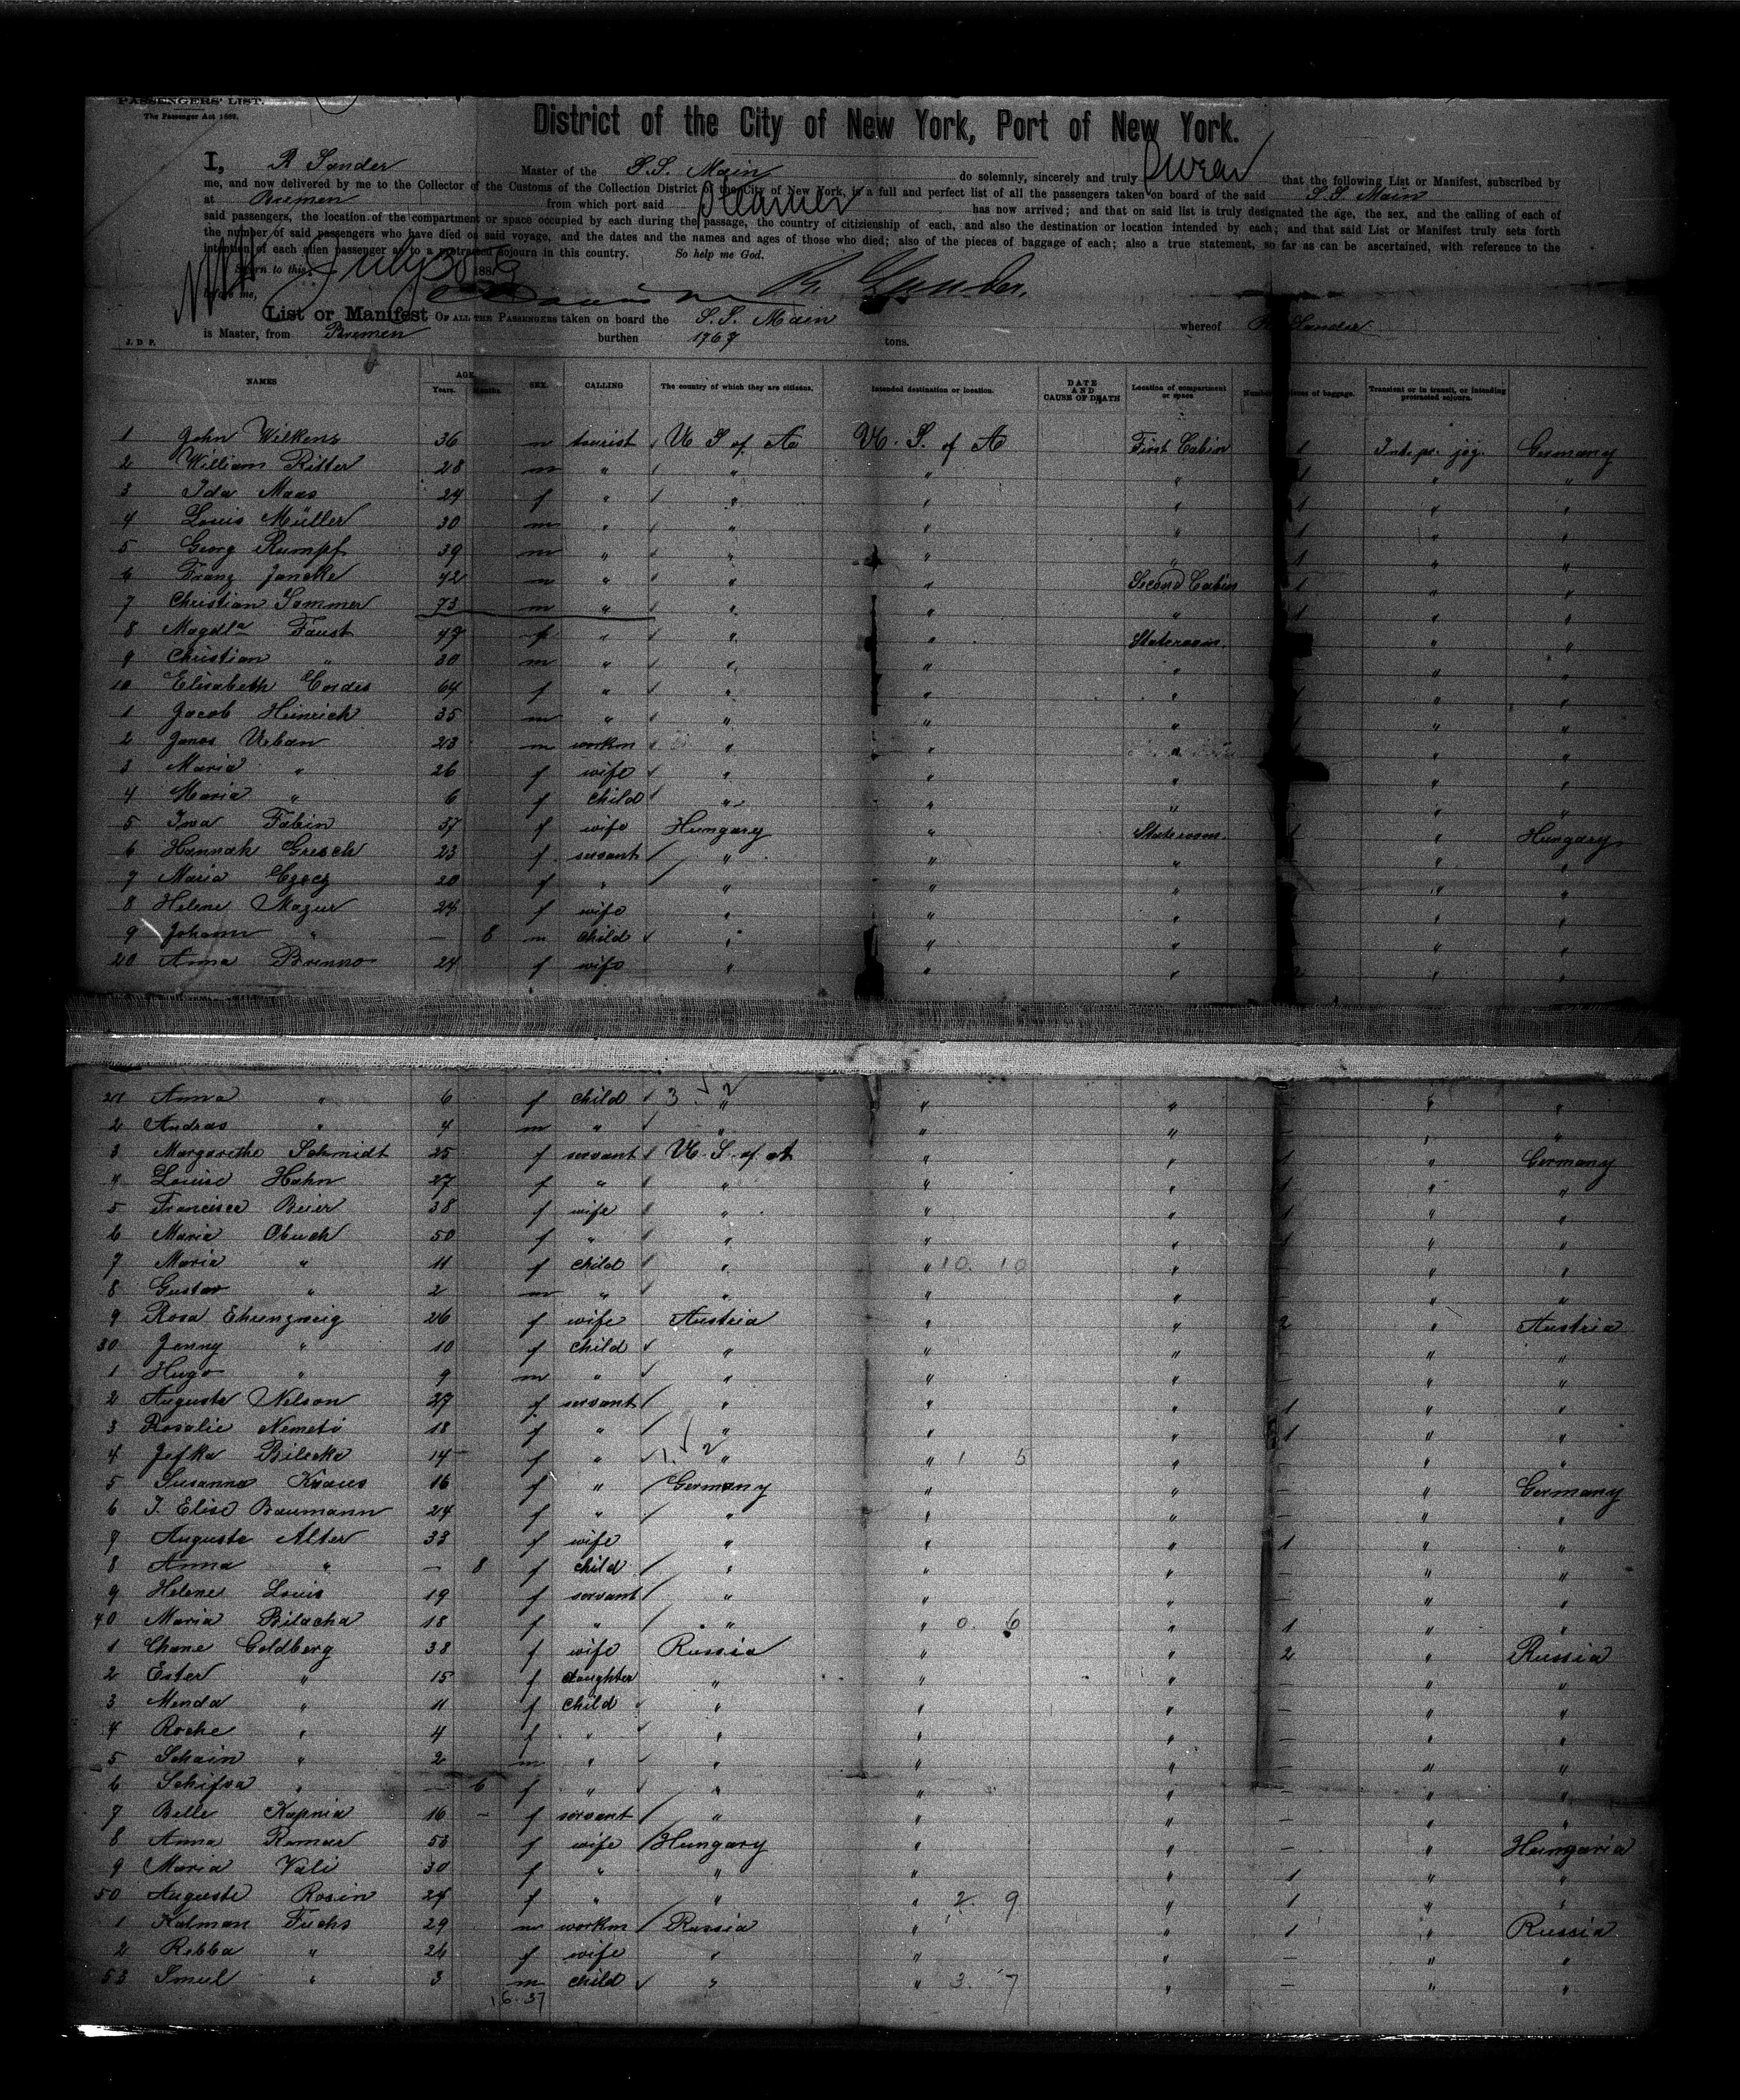 PASSENGERS' LIST.
The Passenger Act 1882.
District of the City of New York, Port of New York.
I, R Sander Master of the S.S. Main do solemnly, sincerely and truly swear that the following List or Manifest, subscribed by
me, and now delivered by me to the Collector of the Customs of the Collection District of the City of New York, is a full and perfect list of all the passengers taken on board of the said S.S. Main
at Bremen from which port said Steamer has now arrived; and that on said list is truly designated the age, the sex, and the calling of each of
said passengers, the location of the compartment or space occupied by each during the passage, the country of citizenship of each, and also the destination or location intended by each; and that said List or Manifest truly sets forth
the number of said passengers who have died on said voyage, and the dates and the names and ages of those who died; also of the pieces of baggage of each; also a true statement, so far as can be ascertained, with reference to the
intention of each alien passenger as to a protracted sojourn in this country. So help me God.
Sworn to this July 30 188
before me, R. Sander.
List or Manifest OF ALL THE PASSENGERS taken on board the S.S. Main whereof R. Sander
is Master, from Bremen burthen 1767 tons.
J. D. P.
NAMES AGE Years. Months. SEX. CALLING The country of which they are citizens. Intended destination or location. DATE AND CAUSE OF DEATH Location of compartment or space. Number pieces of baggage. Transient or in transit, or intending protracted sojourn.
1 John Wilkens 36 m tourist U S of A U. S. of A First Cabin 1 Germany
2 William Ritter 28 m " " " " 1 " "
3 Ida Maas 24 f " " " " 1 " "
4 Louis Müller 30 m " " " " 1 " "
5 Georg Rumpf 39 m " " " " 1 " "
6 Franz Jancke 42 m " " " Second Cabin 1 " "
7 Christian Sommer 73 m " " " " 1 " "
8 Magdla Faust 49 f " " " Stateroom " "
9 Christian " 30 m " " " " " "
10 Elisabeth Cordes 64 f " " " " 1 " "
1 Jacob Heinrich 35 m " " " " 1 " "
2 Janos Urban 23 m workm " " " 1 " "
3 Maria " 26 f wife " " " " "
4 Maria " 6 f child " " " " "
5 Iwa Fabin 37 f wife Hungary " Stateroom 1 " Hungary
6 Hannah Gresch 23 f servant " " " " "
7 Maria Czocz 20 f " " " " " "
8 Helene Mazur 24 f wife " " " " "
9 Johann " — 8 m child " " " " "
20 Anna Brenno 24 f wife " " " 2 " "
21 Anna " 6 f child 3 2 " " " " "
2 Andras " 4 m " " " " — " "
3 Margarethe Schmidt 25 f servant U. S. of A " " 1 " Germany
4 Louise Hahn 27 f " " " " 1 " "
5 Francisca Beier 38 f wife " " " 1 " "
6 Maria Obuch 50 f " " " " 1 " "
7 Maria " 11 f child " " 10. 10 " — " "
8 Gustav " 2 m " " " " — " "
9 Rosa Ehrenzweig 26 f wife Austria " " 2 " Austria
30 Jenny " 10 f child " " " — " "
1 Hugo " 9 m " " " " — " "
2 Auguste Nelson 27 f servant " " " 1 " "
3 Rosalie Nemeti 18 f " " " " 1 " "
4 Jefka Bilecka 14 f " 1. 2 " " 1 5 " — " "
5 Susanna Kraus 16 f " Germany " " — " Germany
6 J. Elise Baumann 24 f " " " " — " "
7 Auguste Alter 33 f wife " " " 1 " "
8 Anna " — 8 f child " " " — " "
9 Helene Louis 19 f servant " " " — " "
40 Maria Bilacha 18 f " " " 0. 6 " 1 " "
1 Chane Goldberg 38 f wife Russia " " 2 " Russia
2 Ester " 15 f daughter " " " — " "
3 Menda " 11 f child " " " — " "
4 Roche " 4 f " " " " — " "
5 Schain " 2 m " " " " — " "
6 Schifra " — 6 f " " " " — " "
7 Belle Kapnia 16 — f servant " " " — " "
8 Anna Roman 53 f wife Hungary " " — " Hungaria
9 Maria Vali 30 f " " " " 1 " "
50 Auguste Rosin 24 f " " " 2. 9 " 1 " "
1 Kalman Fuchs 29 m workm Russia " " 1 " Russia
2 Rebba " 26 f wife " " " — " "
53 Smul " 3 m child " " 3. 7 " — " "
1. 6. 37